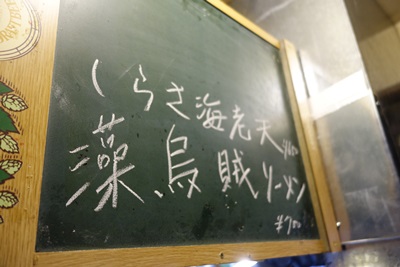 しらさ海老天 ¥650
藻烏賊ソーメン
¥700